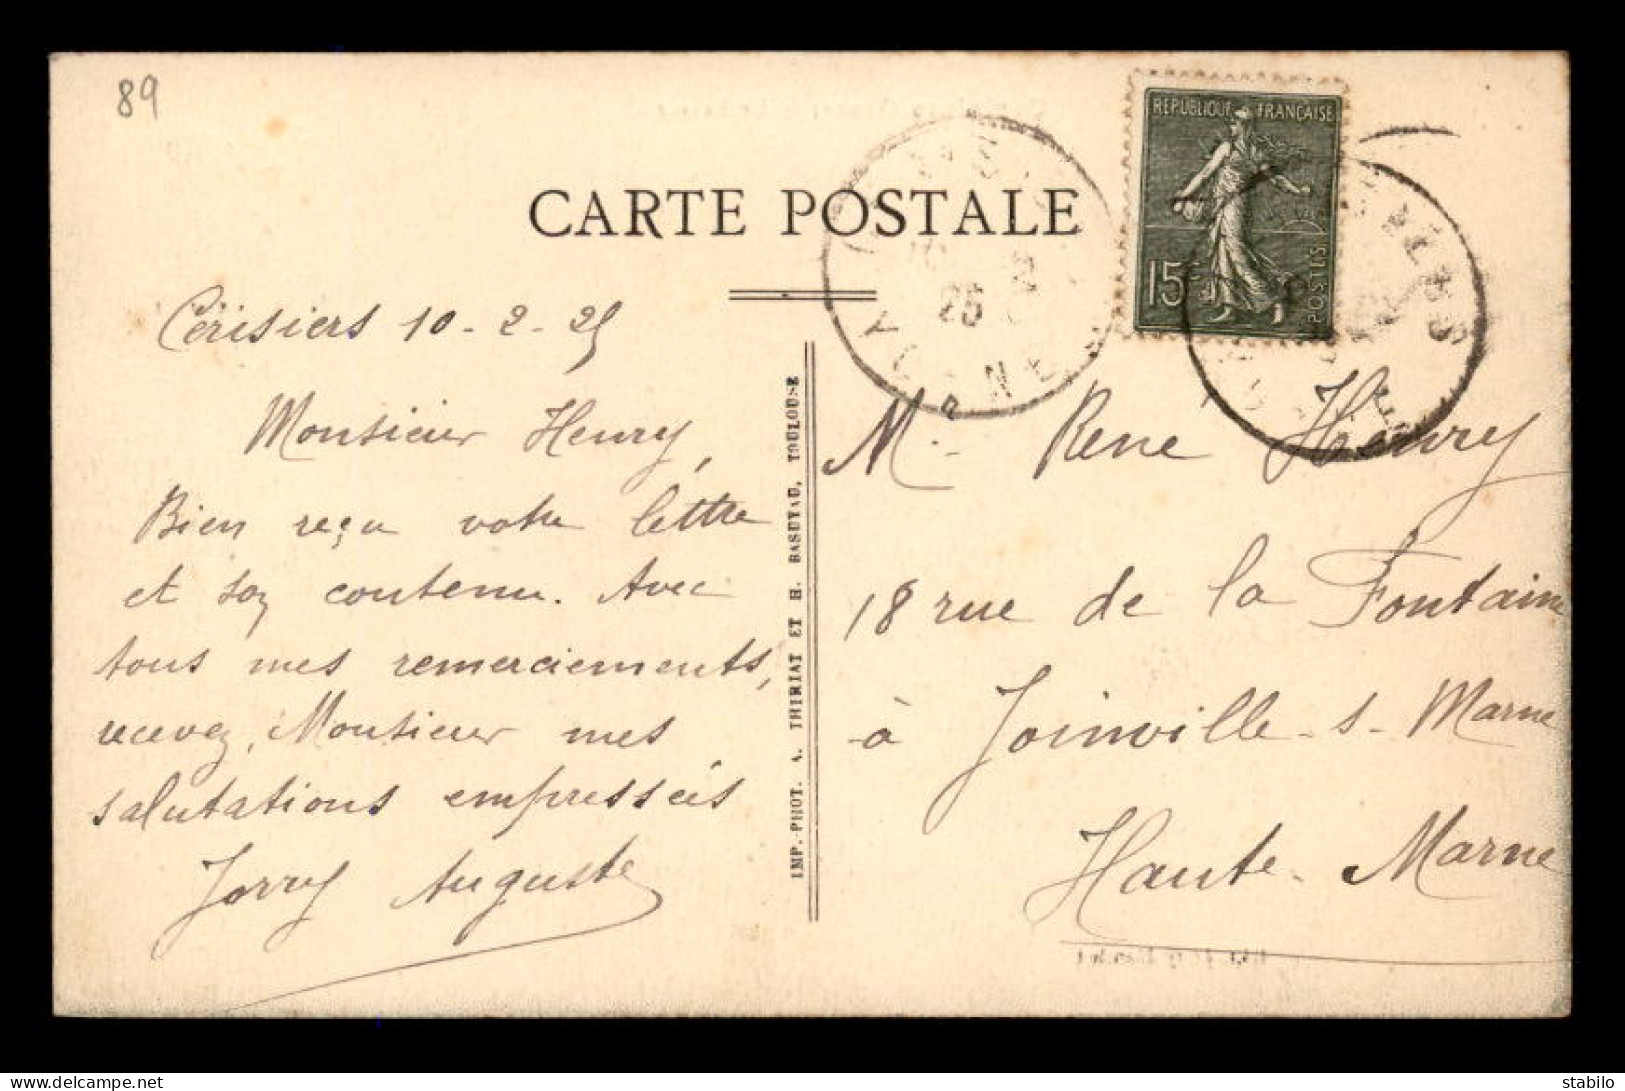 89
CARTE POSTALE
REPUBLIQUE FRANÇAISE
15c
POSTES
YONNE
25
Cérisiers 10-2-25
Monsieur Henry,
Bien reçu votre lettre
et son contenu. Avec
tous mes remerciements,
recevez, Monsieur mes
salutations empressées
Jorry Auguste
IMP.-PHOT. A. THIRIAT ET H. BASUYAU, TOULOUSE
Mr René Henry
18 rue de la Fontaine
à Joinville-s-Marne
Haute-Marne
stabilo